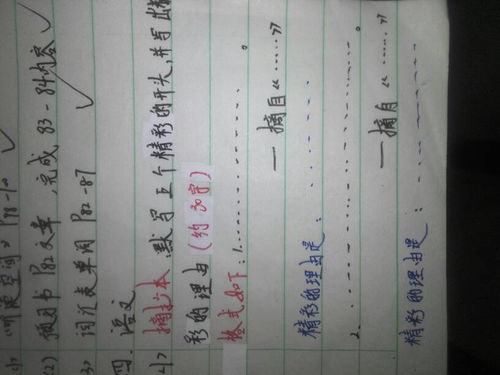 1) 听更空间》P78-10 ✓
(2) 预习书P82文章,完成83-84内容 ✓
3) 词汇表单周P82-87 ✓
四. 语文
1) 摘抄本 默写五个精彩的开头,并写出精
彩的理由(约30字)
格式如下:1. ……………。
——摘自《……》
精彩的理由是:……
2. ……………
——摘自《……》
精彩的理由是:……